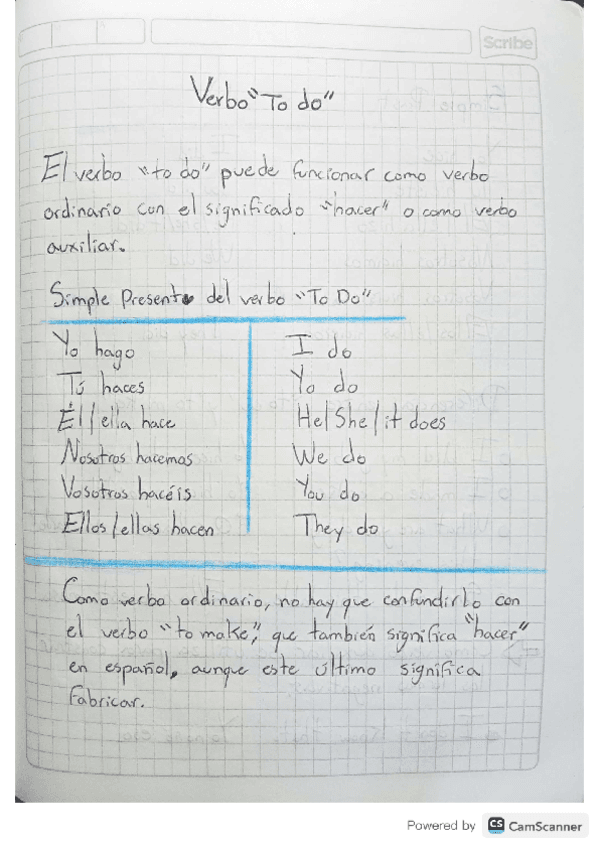 Scribe
Verbo "To do"
El verbo "to do" puede funcionar como verbo
ordinario con el significado "hacer" o como verbo
auxiliar.
Simple Present del verbo "To Do"
Yo hago I do
Tú haces Yo do
Él/ella hace He/She/it does
Nosotros hacemos We do
Vosotros hacéis You do
Ellos/ellas hacen They do
Como verbo ordinario, no hay que confundirlo con
el verbo "to make", que también significa "hacer"
en español, aunque este último significa
fabricar.
Powered by CS CamScanner